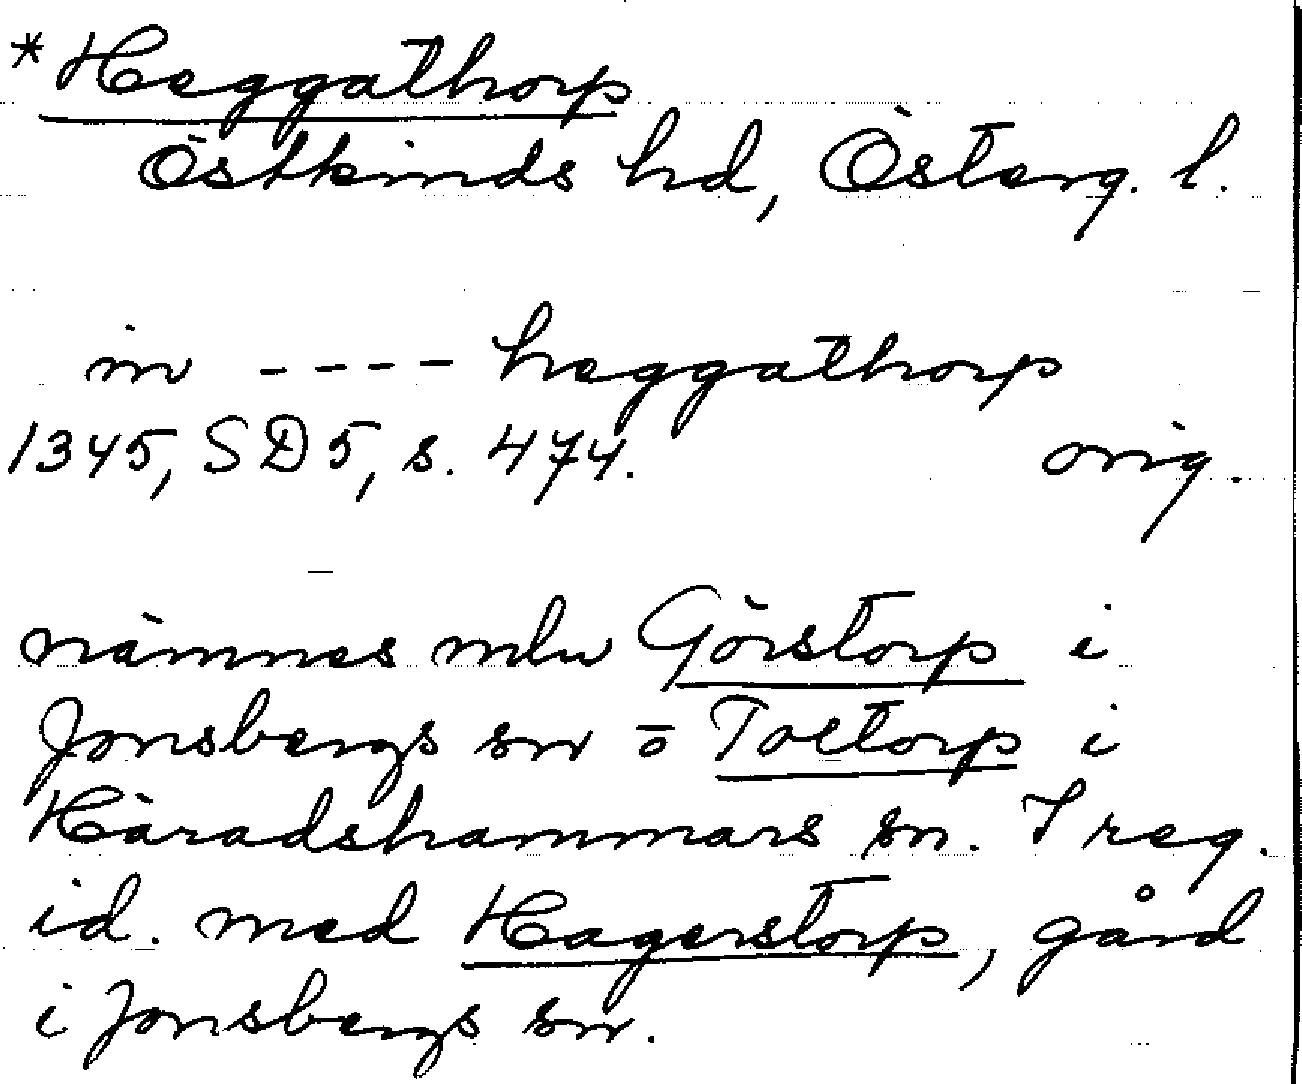 *Heggathorp
Östkinds hd, Österg. l.
in ---- heggathorp
1345, SD5, s. 474. orig.
nämnes mln Görstorp i
Jonsbergs sn o Toltorp i
Häradshammars sn. I reg.
id. med Hagerstorp, gård
i Jonsbergs sn.